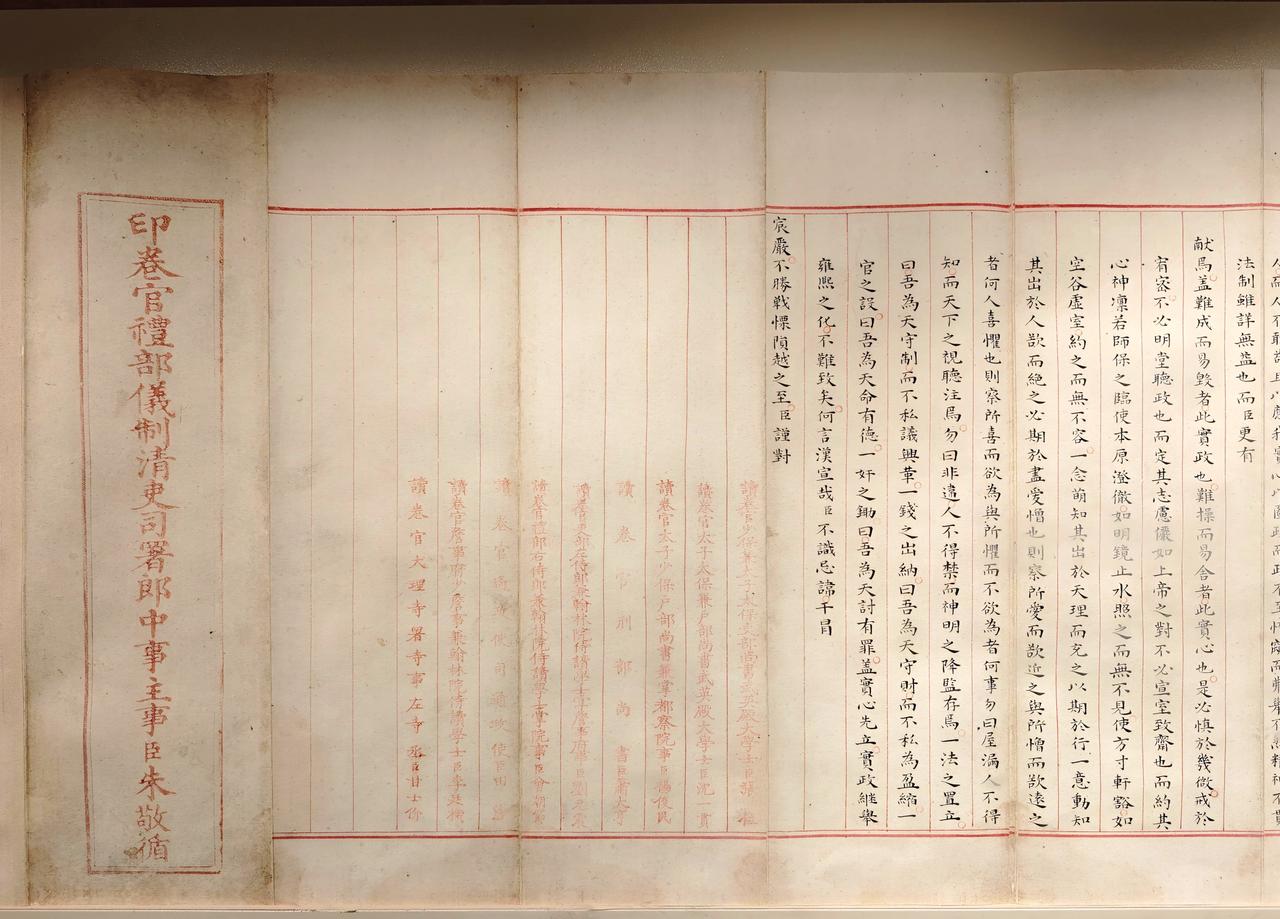 法制雖詳無益也而臣更有
献焉蓋難成而易毀者此實政也難操而易舍者此實心也是必慎於幾微戒於
宥密不必明堂聽政也而定其志慮儼如上帝之對不必宣室致齋也而約其
心神凛若師保之臨使本原澄徹如明鏡止水照之而無不見使方寸軒豁如
空谷虛室約之而無不容一念萌知其出於天理而充之以期於行一意動知
其出於人欲而絶之必期於盡愛憎也則察所愛而欲近之與所憎而欲遠之
者何人喜懼也則察所喜而欲為與所懼而不欲為者何事勿曰屋漏人不得
知而天下之視聽注焉勿曰非違人不得禁而神明之降監存焉一法之置立
曰吾為天守制而不私議興革一錢之出納曰吾為天守財而不私為盈縮一
官之設曰吾為天命有德一奸之鋤曰吾為天討有罪蓋實心先立實政継舉
雍熙之化不難致矣何言漢宣哉臣不識忌諱干冒
宸嚴不勝戰慄隕越之至臣謹對
讀卷官少保兼太子太保吏部尚書武英殿大學士臣張位
讀卷官太子太保兼戶部尚書武英殿大學士臣沈一貫
讀卷官太子少保戶部尚書兼掌都察院事臣楊俊民
讀卷官刑部尚書臣蕭大亨
讀卷官吏部左侍郎兼翰林院侍讀學士
讀卷官禮部右侍郎兼翰林院侍讀學士掌院事臣曾朝節
讀卷官通政使司通政使臣田
讀卷官詹事府少詹事兼翰林院侍讀學士臣李廷機
讀卷官大理寺署寺事左寺丞臣甘士价
印卷官禮部儀制清吏司署郎中事主事臣朱敬循